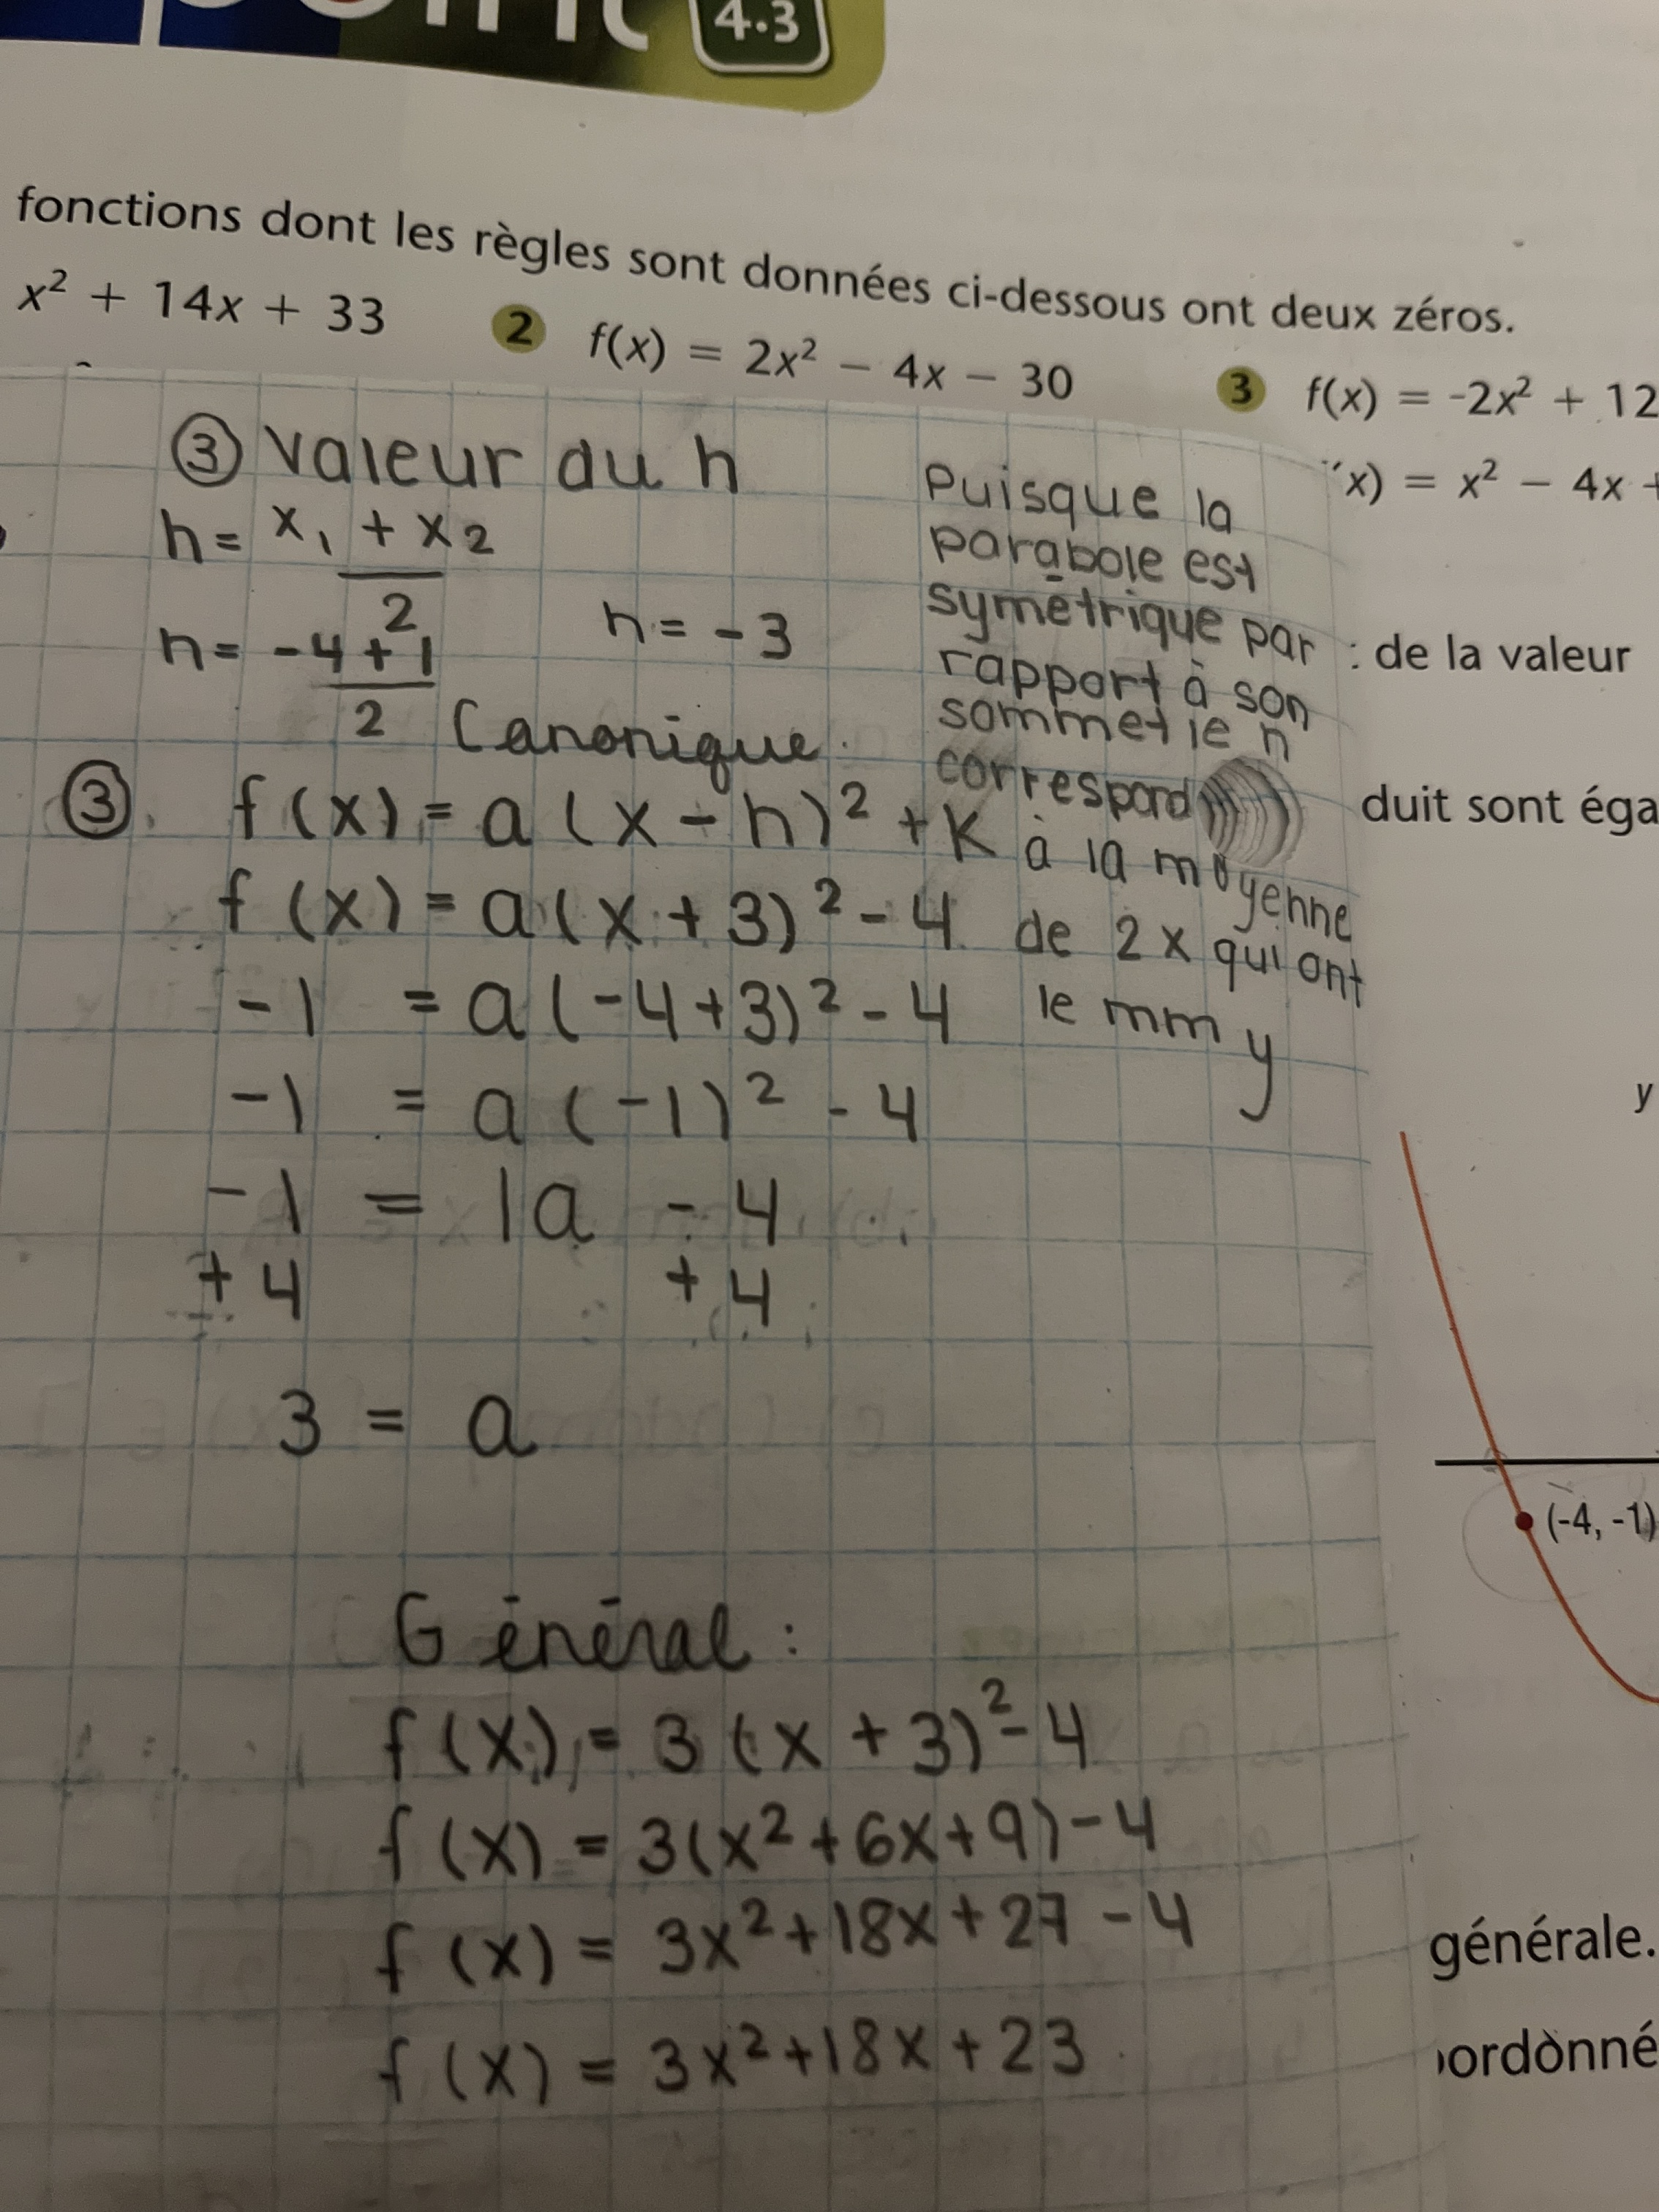 4.3
fonctions dont les règles sont données ci-dessous ont deux zéros.
x² + 14x + 33
2 f(x) = 2x² − 4x − 30
3 f(x) = -2x² + 12
x) = x² − 4x +
③ Valeur du h
h = x₁ + x₂
2
h = -4 + 1
2
h = -3
Puisque la
parabole est
symétrique par
rapport à son
sommet le h
correspond
à la moyenne
de 2 x qui ont
le mm y
: de la valeur
duit sont éga
Canonique.
③. f(x) = a(x - h)² + k
f(x) = a(x + 3)² - 4
-1 = a(-4+3)² - 4
-1 = a(-1)² - 4
-1 = 1a - 4
+4 +4
3 = a
y
(-4, -1)
Général :
f(x) = 3(x + 3)² - 4
f(x) = 3(x² + 6x + 9) - 4
f(x) = 3x² + 18x + 27 - 4
f(x) = 3x² + 18x + 23
générale.
ordonné